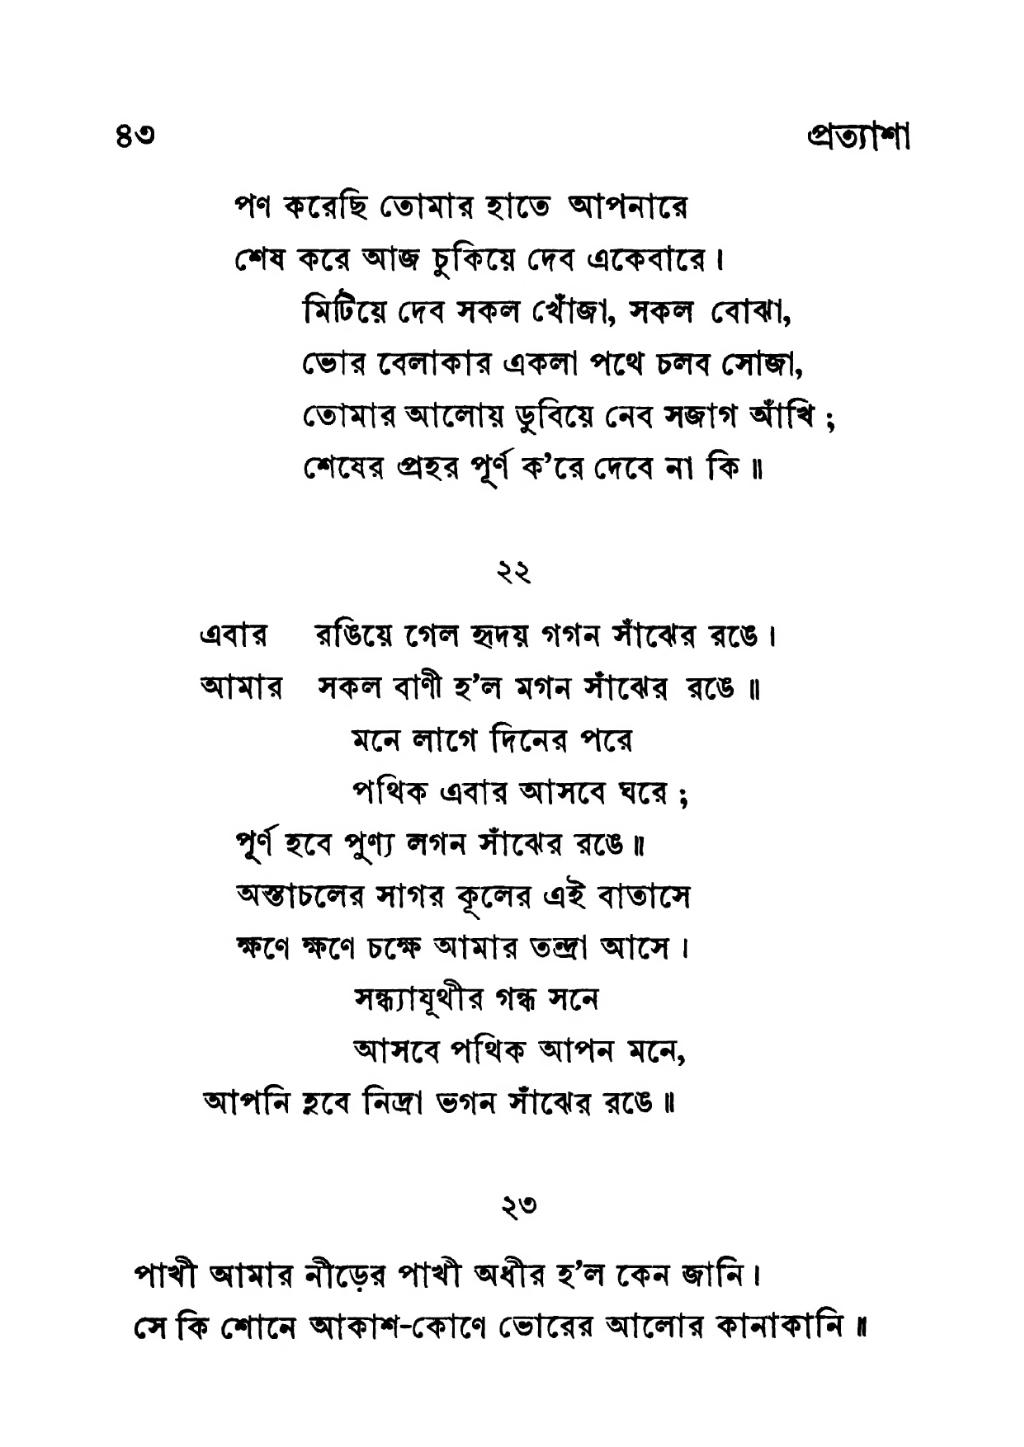 ৪৩ প্রত্যাশা
পণ করেছি তোমার হাতে আপনারে
শেষ করে আজ চুকিয়ে দেব একেবারে।
মিটিয়ে দেব সকল খোঁজা, সকল বোঝা,
ভোর বেলাকার একলা পথে চলব সোজা,
তোমার আলোয় ডুবিয়ে নেব সজাগ আঁখি ;
শেষের প্রহর পূর্ণ ক'রে দেবে না কি॥
২২
এবার রঙিয়ে গেল হৃদয় গগন সাঁঝের রঙে।
আমার সকল বাণী হ'ল মগন সাঁঝের রঙে॥
মনে লাগে দিনের পরে
পথিক এবার আসবে ঘরে ;
পূর্ণ হবে পুণ্য লগন সাঁঝের রঙে॥
অস্তাচলের সাগর কূলের এই বাতাসে
ক্ষণে ক্ষণে চক্ষে আমার তন্দ্রা আসে।
সন্ধ্যাযূথীর গন্ধ সনে
আসবে পথিক আপন মনে,
আপনি হবে নিদ্রা ভগন সাঁঝের রঙে॥
২৩
পাখী আমার নীড়ের পাখী অধীর হ'ল কেন জানি।
সে কি শোনে আকাশ-কোণে ভোরের আলোর কানাকানি॥